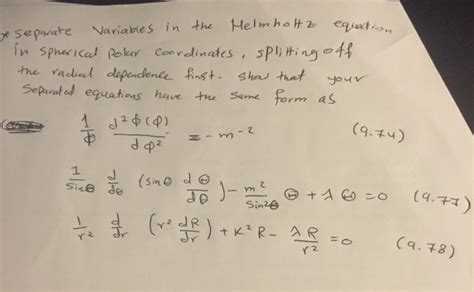 * separate variables in the Helmholtz equation
in spherical polar coordinates, splitting off
the radial dependence first. Show that your
separated equations have the same form as
1/Φ d²Φ(φ)/dφ² = -m⁻² (9.74)
1/sinθ d/dθ (sinθ dΘ/dθ) - m²/sin²θ Θ + λ Θ = 0 (9.77)
1/r² d/dr (r² dR/dr) + K² R - λR/r² = 0 (9.78)